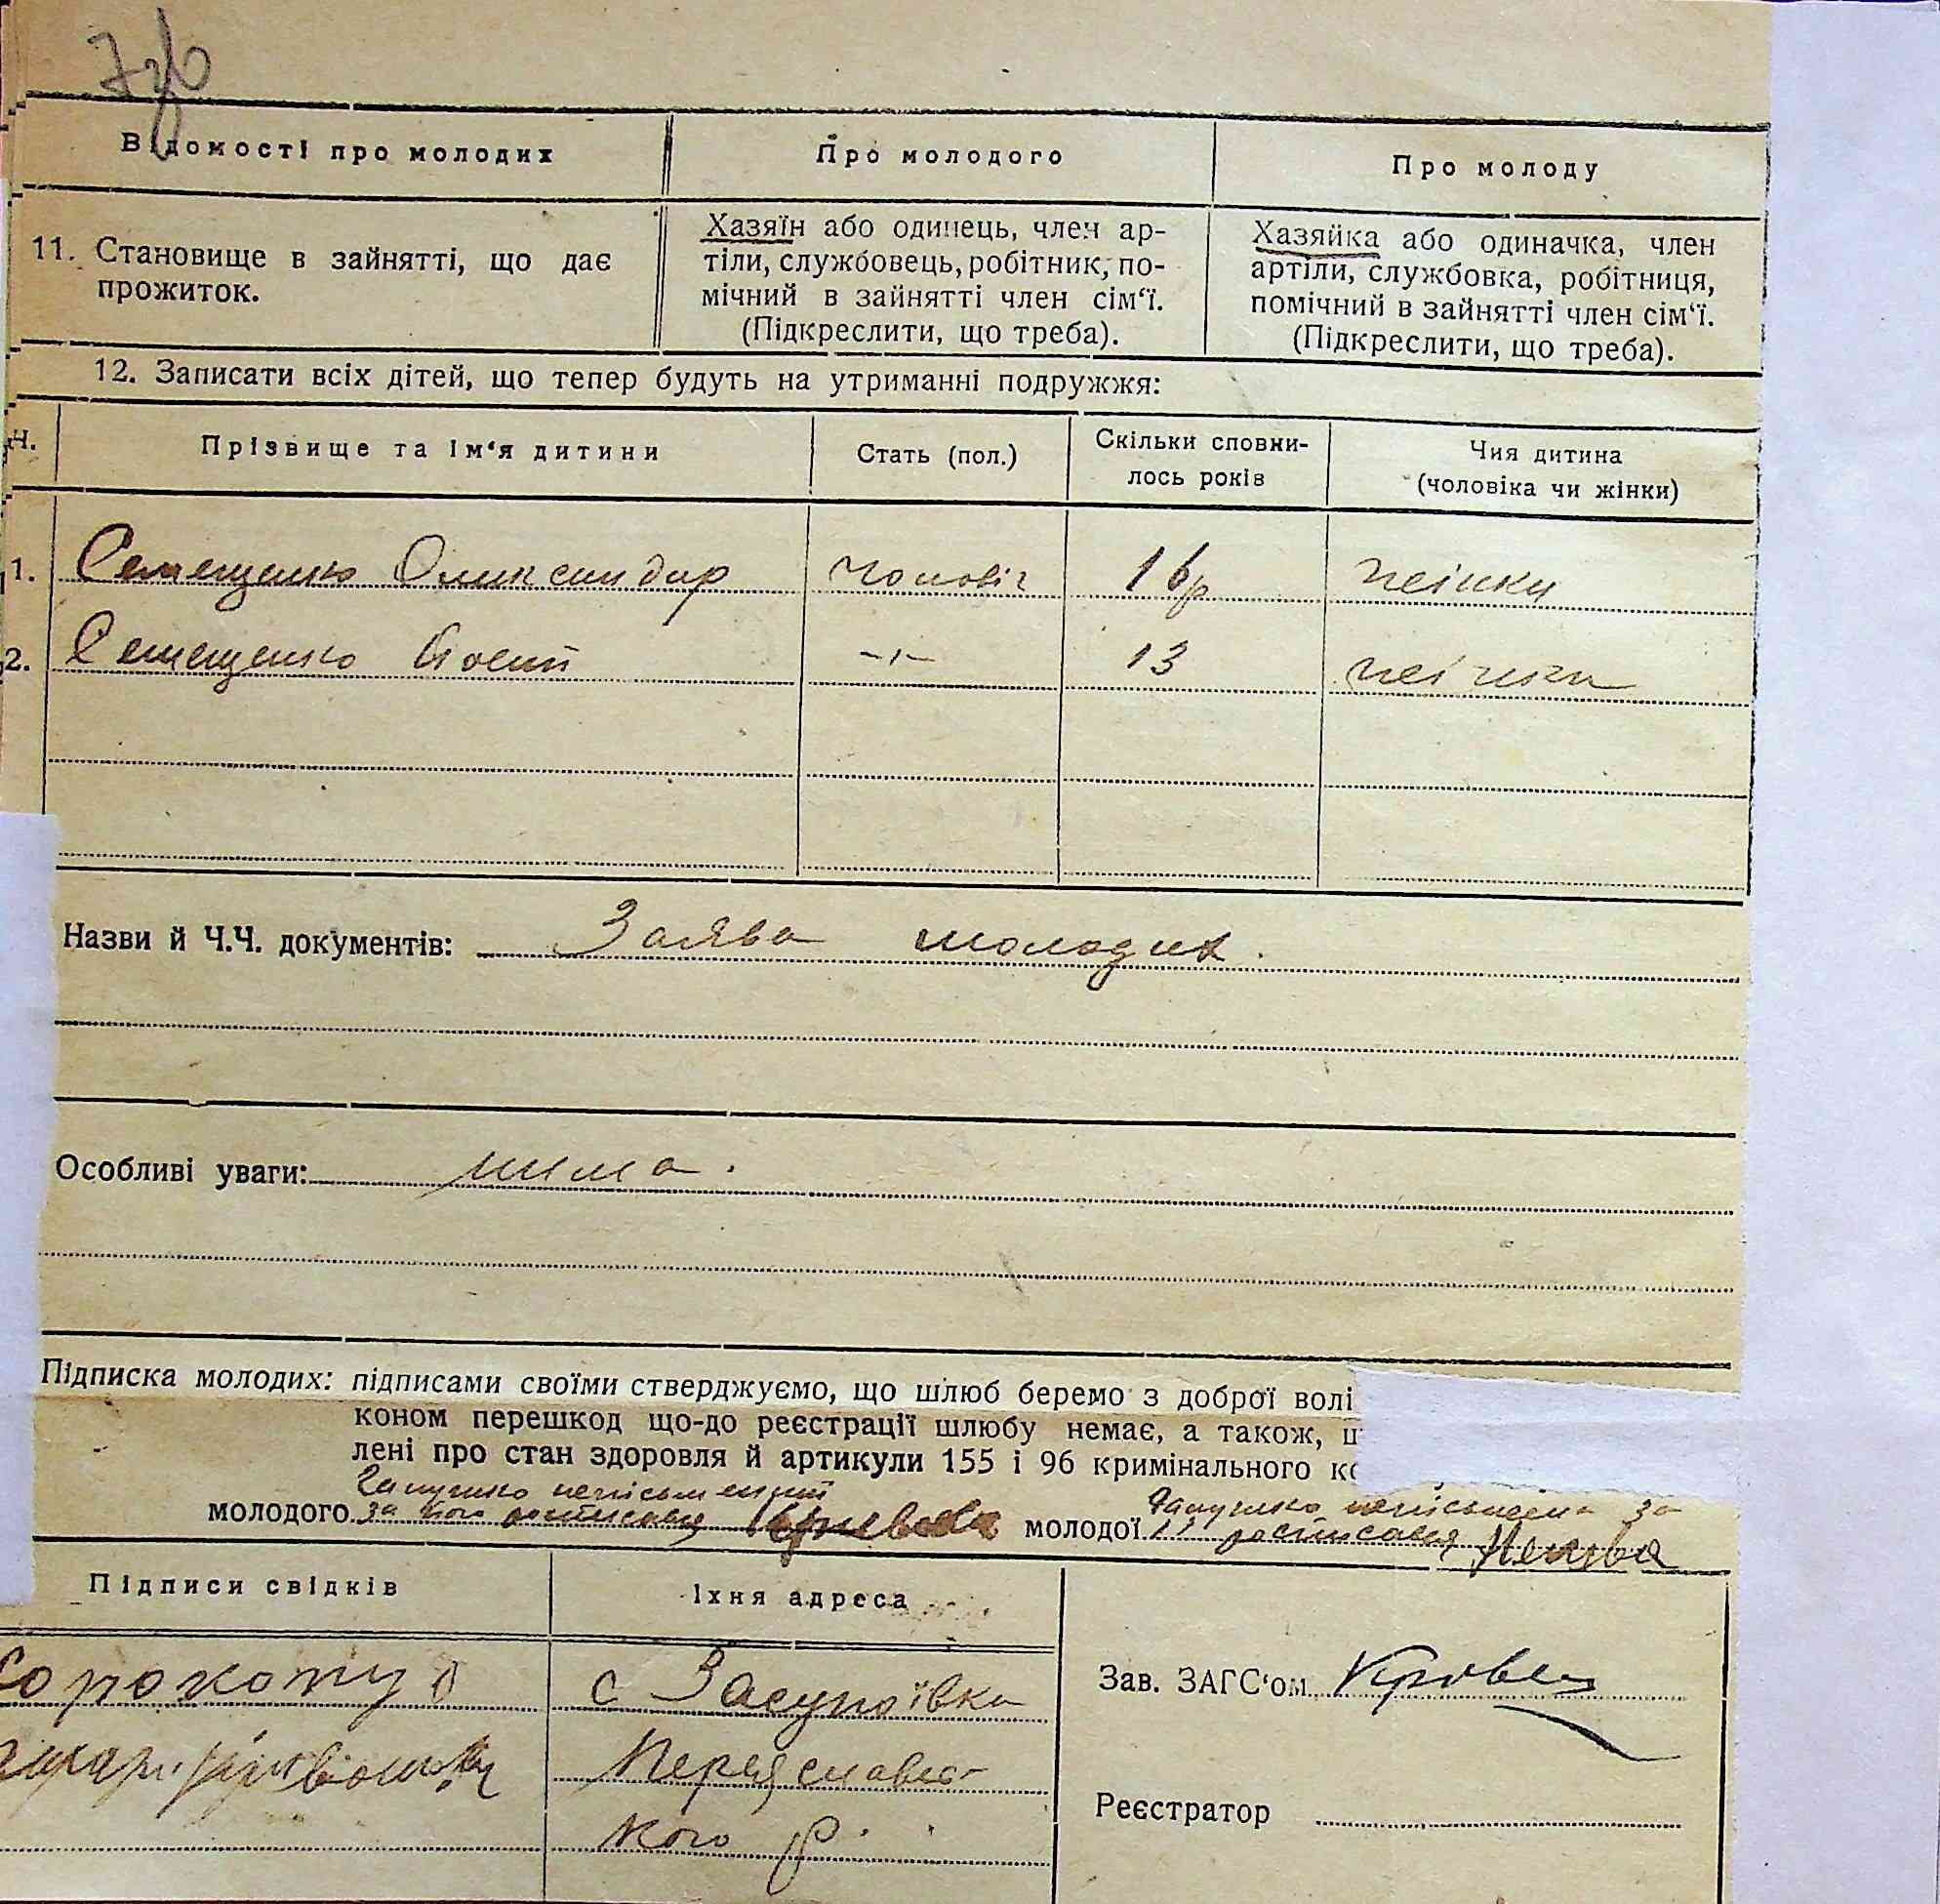 Відомості про молодих
Про молодого
Про молоду
11. Становище в зайнятті, що дає
прожиток.
Хазяїн або одинець, член ар-
тіли, службовець, робітник, по-
мічний в зайнятті член сім‘ї.
(Підкреслити, що треба).
Хазяйка або одиначка, член
артіли, службовка, робітниця,
помічний в зайнятті член сім‘ї.
(Підкреслити, що треба).
12. Записати всіх дітей, що тепер будуть на утриманні подружжя:
Ч.
Прізвище та ім‘я дитини
Стать (пол.)
Скільки сповни-
лось років
Чия дитина
(чоловіка чи жінки)
1. Семещенко Олександр чоловіч 16р жінки
2. Семещенко -"- 13 жінки
Назви й Ч.Ч. документів: Заява молодих.
Особливі уваги: нима.
Підписка молодих: підписами своїми стверджуємо, що шлюб беремо з доброї волі
коном перешкод що-до реєстрації шлюбу немає, а також,
лені про стан здоровля й артикули 155 і 96 кримінального
неписьменний
молодого за його росписався
неписьменна за
молодої її росписався
Підписи свідків
Їхня адреса
с Засупоївка
Переяславсь-
кого р.
Зав. ЗАГС‘ом
Реєстратор